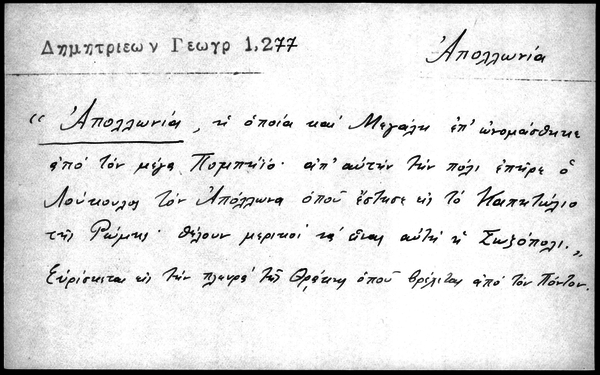 Δημητριεων Γεωγρ 1,277
Ἀπολλωνία
“ Ἀπολλωνία, ἡ ὁποία καὶ Μεγάλη ἐπ' ὠνομάσθηκε
ἀπὸ τὸν μέγα Πομπήϊο· ἀπ' αὐτὴν τὴν πόλι ἐπῆρε ὁ
Λούκουλος τὸν Ἀπόλλωνα ὁποῦ ἔστησε εἰς τὸ Καπητώλιο
τῆς Ρώμης· θέλουν μερικοὶ νὰ εἶναι αὐτὴ ἡ Σωζόπολι.„
Εὑρίσκεται εἰς τὴν πλευρὰ τῆς Θράκης ὁποῦ βρέχεται ἀπὸ τὸν Πόντον.